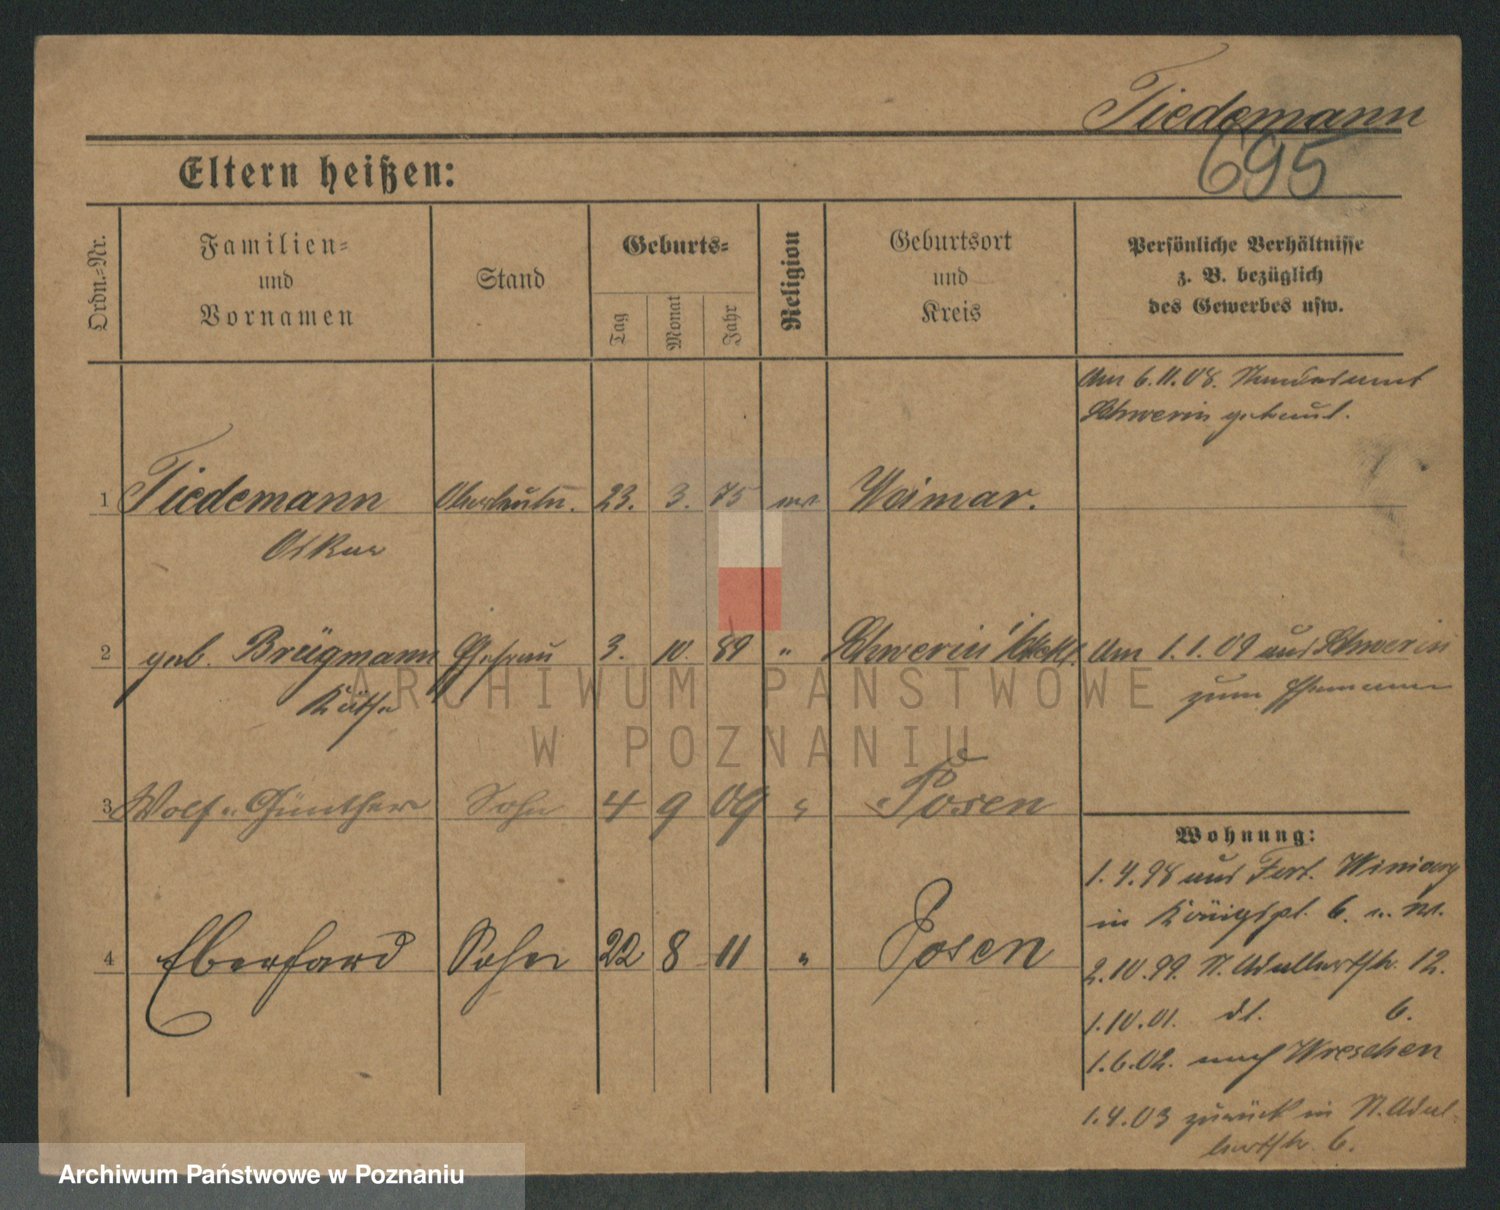 Tiedemann
695
Eltern heißen:
Ordn.-Nr.
Familien-
und
Vornamen
Stand
Geburts-
Tag
Monat
Jahr
Religion
Geburtsort
und
Kreis
Persönliche Verhältnisse
z. B. bezüglich
des Gewerbes usw.
Am 6.11.08. Standesamt
Schwerin getraut.
1 Tiedemann Oberleutn. 23. 3. 75 Weimar.
Oskar
2 geb. Brügmann Ehefrau 3. 10. 89 " Schwerin Am 1.1.09 aus Schwerin
Käthe zum Ehemann
3 Wolf Günther Sohn 4 9 09 " Posen
Wohnung:
1.4.98 aus Fort Winiary
in Königspl. 6.
4 Eberhard Sohn 22 8 11 " Posen
2.10.99. N. Adalbertstr. 12.
1.10.01. dt. 6.
1.6.02. nach Wreschen
1.4.03 zurück in N. Adal-
bertstr. 6.
ARCHIWUM PAŃSTWOWE
W POZNANIU
Archiwum Państwowe w Poznaniu